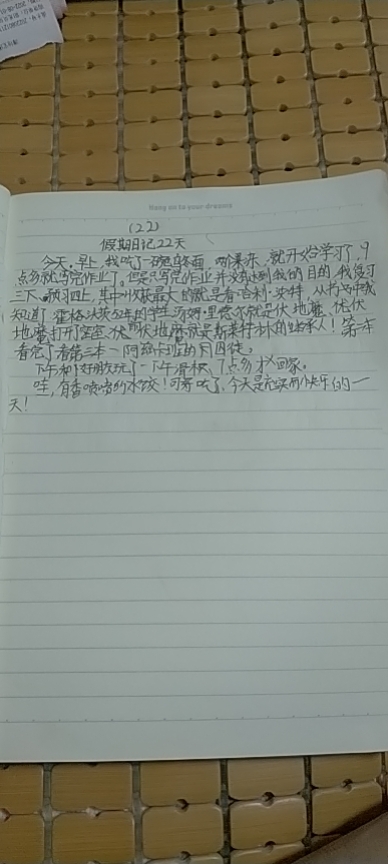 Hang on to your dreams
(22)
假期日记22天
今天,早上,我吃了一碗乌冬面 两个果冻,就开始学习了,9
点多就写完作业了。但是只写完作业并没达到我的目的,我复习
三下、预习四上,其中收获最大的就是看哈利·波特,从书中我
知道了霍格沃茨52年的学生汤姆·里德尔就是伏地魔,伏伏
地魔打开了密室、伏地魔就是斯莱特林的继承人!第二本
看完了看第三本—阿兹卡班的囚徒。
下午和好朋友玩了一下午滑板、7点多才回家。
哇,有香喷喷的水饺!可好吃了,今天是充实而快乐的一
天!